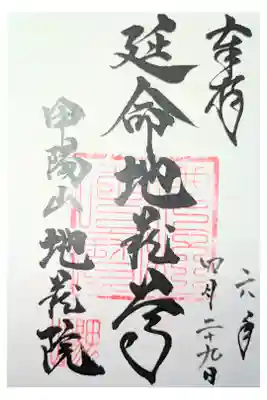 奉拝
六年
四月二十九日
延命地蔵尊
甲陽山地蔵院